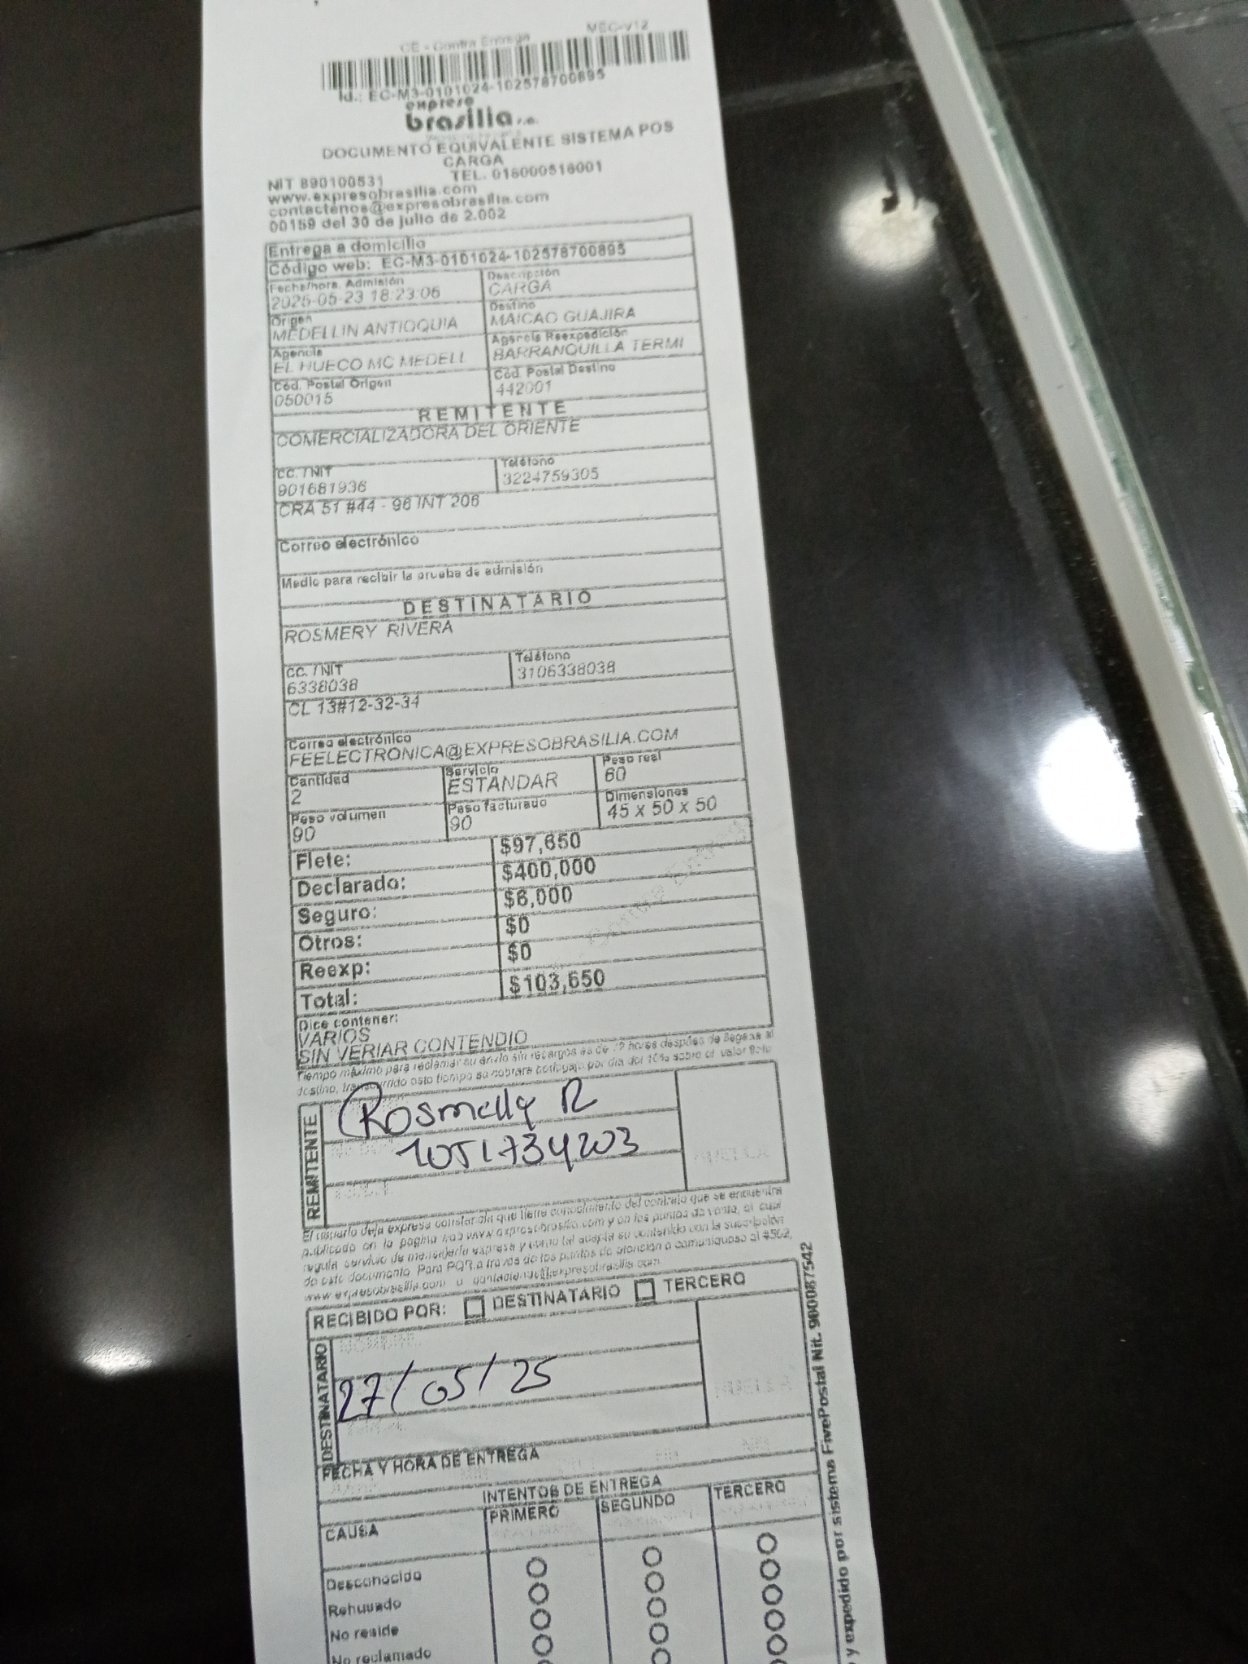 CE - Contra Entrega MEC-V12
Id.: EC-M3-0101024-102578700895
expreso
brasilia s.a.
DOCUMENTO EQUIVALENTE SISTEMA POS
CARGA
NIT 890100531 TEL. 018000518001
www.expresobrasilia.com
contactenos@expresobrasilia.com
00159 del 30 de julio de 2.002
Entrega a domicilio
Código web: EC-M3-0101024-102578700895
Fecha/hora. Admisión Descripción
2025-05-23 18:23:06 CARGA
Origen Destino
MEDELLIN ANTIOQUIA MAICAO GUAJIRA
Agencia Agencia Reexpedición
EL HUECO MC MEDELL BARRANQUILLA TERMI
Cód. Postal Origen Cód. Postal Destino
050015 442001
REMITENTE
COMERCIALIZADORA DEL ORIENTE
CC. / NIT Teléfono
901681936 3224759305
CRA 51 #44 - 96 INT 206
Correo electrónico
Medio para recibir la prueba de admisión
DESTINATARIO
ROSMERY RIVERA
CC. / NIT Teléfono
6338038 3106338038
CL 13#12-32-34
Correo electrónico
FEELECTRONICA@EXPRESOBRASILIA.COM
Cantidad Servicio Peso real
2 ESTANDAR 60
Peso volumen Peso facturado Dimensiones
90 90 45 x 50 x 50
Flete: $97,650
Declarado: $400,000
Seguro: $6,000
Otros: $0
Reexp: $0
Total: $103,650
Dice contener:
VARIOS
SIN VERIAR CONTENDIO
Tiempo máximo para reclamar su envío sin recargos es de 72 horas después de llegada al
destino, transcurrido este tiempo se cobrara bodegaje por día del 10% sobre el valor flete
REMITENTE
Rosmelly R
1051734203
El usuario deja expresa constancia que tiene conocimiento del contrato que se encuentra
publicado en la pagina web www.expresobrasilia.com y en los puntos de venta, el cual
regula servicio de mensajería expresa y como tal acepta su contenido con la suscripción
de este documento. Para PQR a través de los puntos de atención o comuníquese al #502,
www.expresobrasilia.com o contactenos@expresobrasilia.com
RECIBIDO POR: DESTINATARIO TERCERO
DESTINATARIO
NOMBRE
27/05/25
FECHA Y HORA DE ENTREGA
INTENTOS DE ENTREGA
CAUSA PRIMERO SEGUNDO TERCERO
Desconocido
Rehusado
No reside
No reclamado
y expedido por sistema FivePostal Nit. 900087542